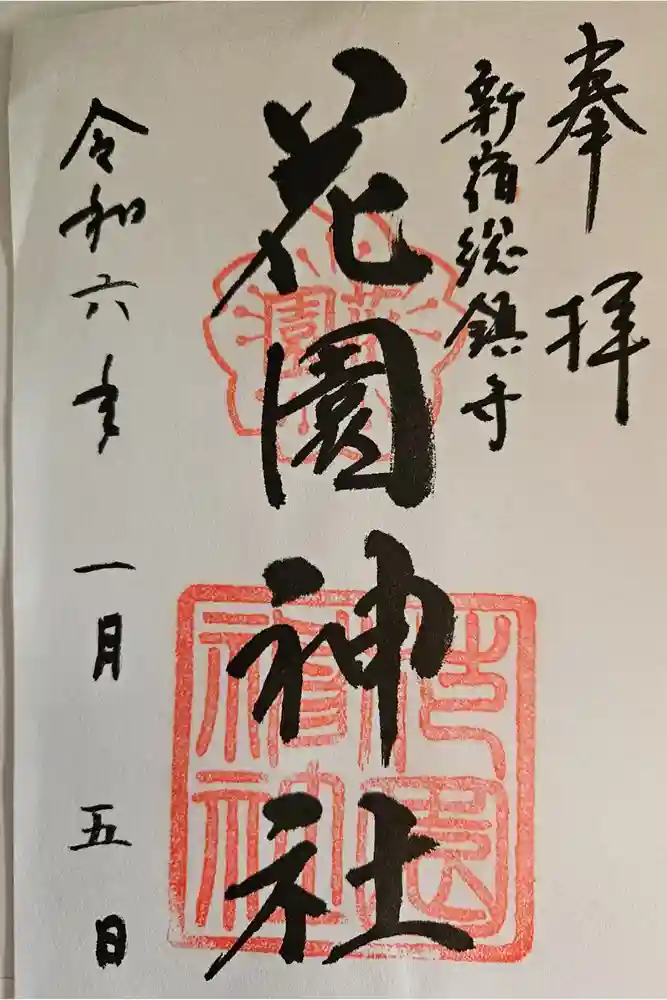 奉拝
新宿総鎮守
花園神社
令和六年
一月
五日
花園
花園神社